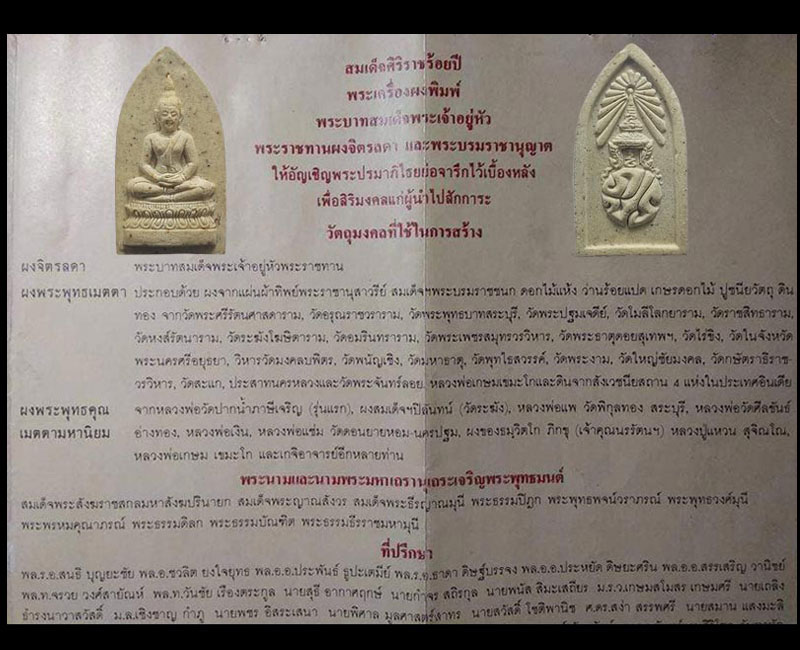 สมเด็จศิริราชร้อยปี
พระเครื่องผงพิมพ์
พระบาทสมเด็จพระเจ้าอยู่หัว
พระราชทานผงจิตรลดา และพระบรมราชานุญาต
ให้อัญเชิญพระปรมาภิไธยย่อจารึกไว้เบื้องหลัง
เพื่อสิริมงคลแก่ผู้นำไปสักการะ
วัตถุมงคลที่ใช้ในการสร้าง
ผงจิตรลดา พระบาทสมเด็จพระเจ้าอยู่หัวพระราชทาน
ผงพระพุทธเมตตา ประกอบด้วย ผงจากแผ่นผ้าทิพย์พระราชานุสาวรีย์ สมเด็จฯพระบรมราชชนก ดอกไม้แห้ง ว่านร้อยแปด เกษรดอกไม้ ปูชนียวัตถุ ดิน
ทอง จากวัดพระศรีรัตนศาสดาราม, วัดอรุณราชวราราม, วัดพระพุทธบาทสระบุรี, วัดพระปฐมเจดีย์, วัดโมลีโลกยาราม, วัดราชสิทธาราม,
วัดหงส์รัตนาราม, วัดระฆังโฆษิตาราม, วัดอมรินทราราม, วัดพระเพชรสมุทรวรวิหาร, วัดพระธาตุดอยสุเทพฯ, วัดไร่ขิง, วัดในจังหวัด
พระนครศรีอยุธยา, วิหารวัดมงคลบพิตร, วัดพนัญเชิง, วัดมหาธาตุ, วัดพุทไธสวรรค์, วัดพระงาม, วัดใหญ่ชัยมงคล, วัดกษัตราธิราช-
วรวิหาร, วัดสะแก, ประสาทนครหลวงและวัดพระจันทร์ลอย, หลวงพ่อเกษมเขมะโกและดินจากสังเวชนียสถาน 4 แห่งในประเทศอินเดีย
ผงพระพุทธคุณ จากหลวงพ่อวัดปากน้ำภาษีเจริญ (รุ่นแรก), ผงสมเด็จฯปิลันทน์ (วัดระฆัง), หลวงพ่อแพ วัดพิกุลทอง สระบุรี, หลวงพ่อวัดศีลขันธ์
เมตตามหานิยม อ่างทอง, หลวงพ่อเงิน, หลวงพ่อแช่ม วัดดอนยายหอม-นครปฐม, ผงของธมฺวิตโก ภิกขุ (เจ้าคุณนรรัตนฯ) หลวงปู่แหวน สุจิณโณ,
หลวงพ่อเกษม เขมะโก และเกจิอาจารย์อีกหลายท่าน
พระนามและนามพระมหาเถรานุเถระเจริญพระพุทธมนต์
สมเด็จพระสังฆราชสกลมหาสังฆปริณายก สมเด็จพระญาณสังวร สมเด็จพระธีรญาณมุนี พระธรรมปิฎก พระพุทธพจน์วราภรณ์ พระพุทธวงศ์มุนี
พระพรหมคุณาภรณ์ พระธรรมดิลก พระธรรมบัณฑิต พระธรรมธีรราชมหามุนี
ที่ปรึกษา
พล.ร.อ.สนธิ บุญยะชัย พล.อ.ชวลิต ยงใจยุทธ พล.อ.อ.ประพันธ์ ธูปะเตมีย์ พล.ร.อ.ธาดา ดิษฐ์บรรจง พล.อ.อ.ประหยัด ดิษยะศริน พล.อ.อ.สรรเสริญ วานิชย์
พล.ท.จรวย วงศ์สายัณห์ พล.ท.วันชัย เรืองตระกูล นายสุธี อากาศฤกษ์ นายกำจร สถิรกุล นายพนัส สิมะเสถียร ม.ร.ว.เกษมสโมสร เกษมศรี นายเถลิง
ธำรงนาวาสวัสดิ์ ม.ล.เชิงชาญ กำภู นายพชร อิสระเสนา นายพิศาล มูลศาสตร์สาทร นายสวัสดิ์ โชติพานิช ศ.ดร.สง่า สรรพศรี นายสมาน แสงมะลิ